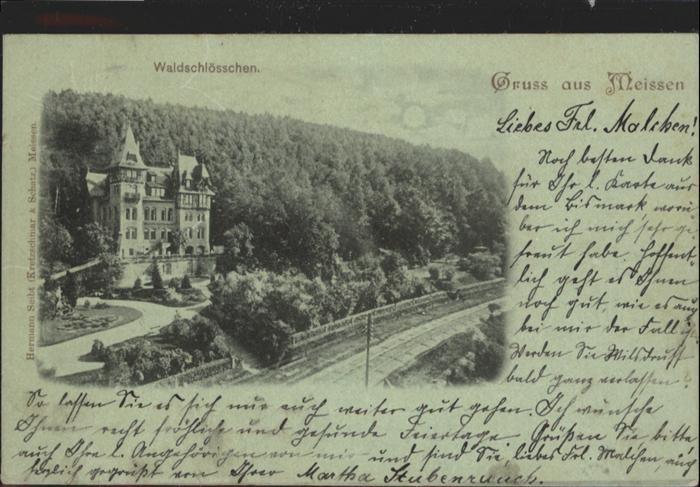 Waldschlösschen.
Gruss aus Meissen
Hermann Seibt (Kretzschmar & Schatz) Meissen.
Liebes Frl. Malchen!
Noch besten Dank
für Ihr l. Karte aus
dem Bismark worü
ber ich mich sehr ge
freut habe. Hoffent
lich geht es Ihnen
noch gut, wie es auch
bei mir der Fall ist.
Werden Sie Wilsdruff
bald ganz verlassen?
So lassen Sie es sich nur auch weiter gut gehen. Ich wünsche
Ihnen recht fröhliche und gesunde Feiertage. Grüßen Sie bitte
auch Ihre l. Angehörigen von mir und sind Sie liebes Frl. Malchen auch
herzlich gegrüßt von Ihrer Martha Stubenrauch.